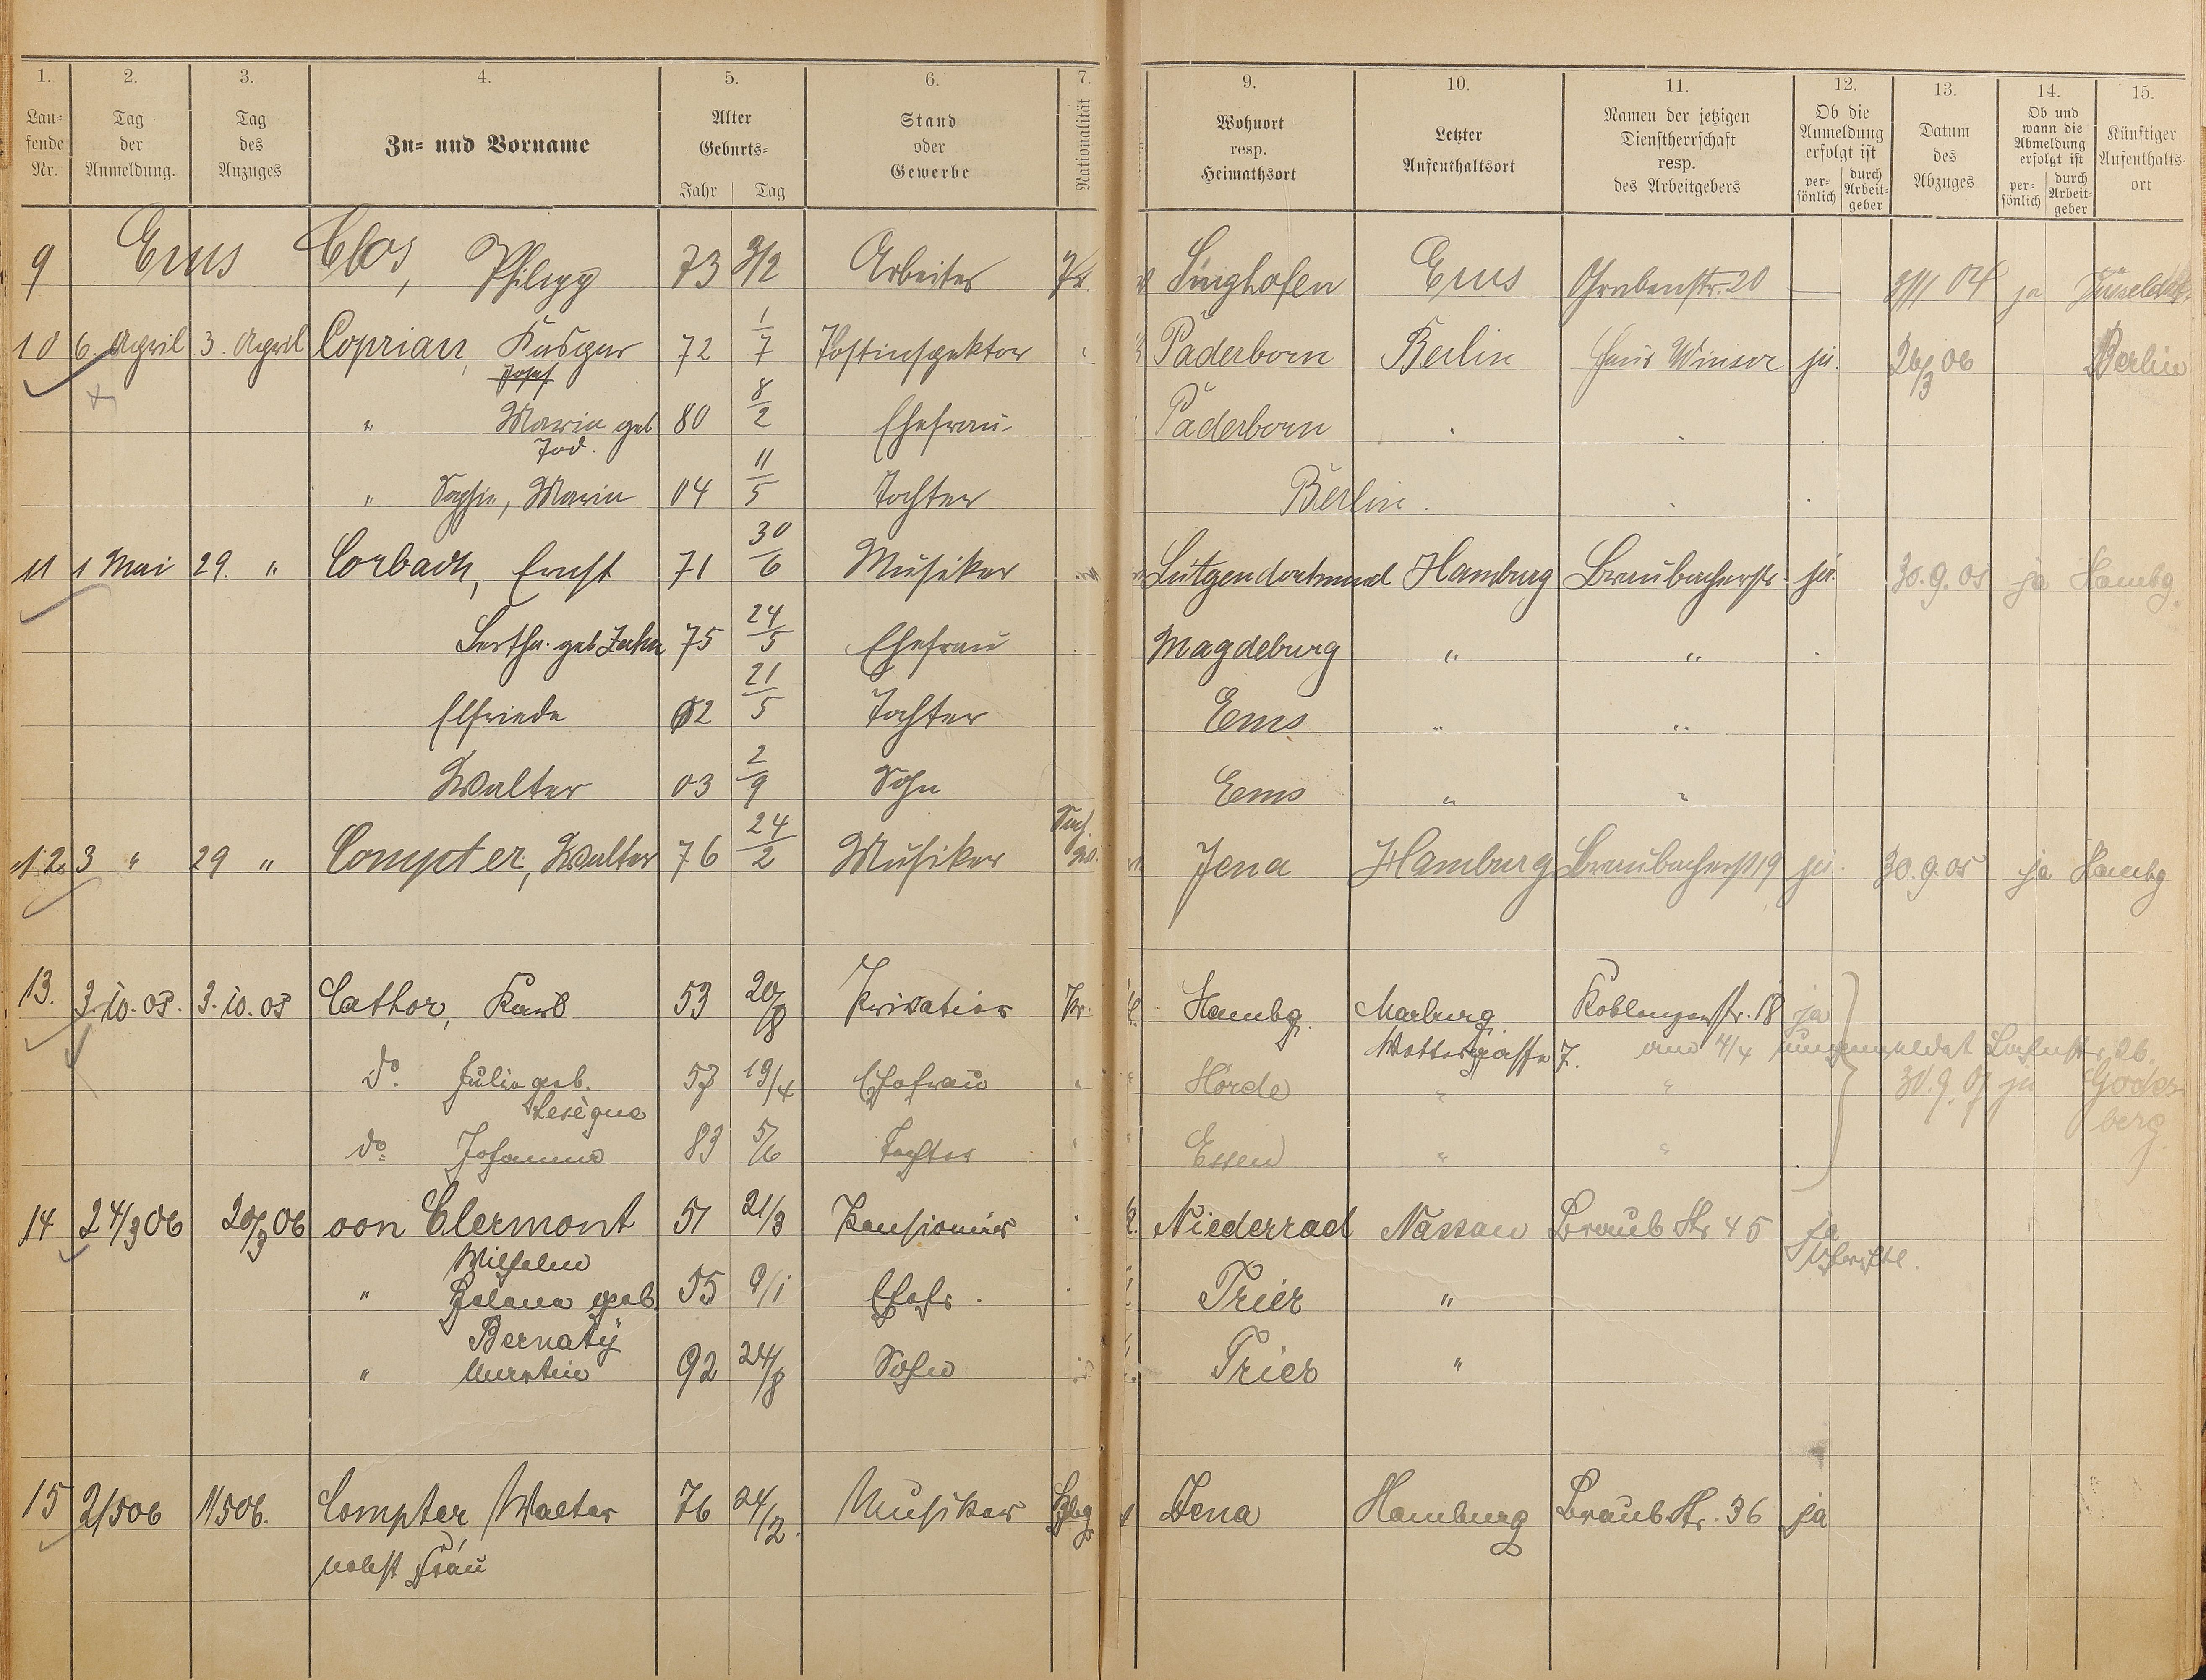 1. 2. 3. 4. 5. 6. 7. 9. 10. 11. 12. 13. 14. 15.
Lau=fende Nr.
Tag der Anmeldung.
Tag des Anzuges
Zu= und Vorname
Alter Geburts= Jahr Tag
Stand oder Gewerbe
Nationalität
Wohnort resp. Heimathsort
Letzter Aufenthaltsort
Namen der jetzigen Dienstherrschaft resp. des Arbeitgebers
Ob die Anmeldung erfolgt ist per=sönlich durch Arbeit=geber
Datum des Abzuges
Ob und wann die Abmeldung erfolgt ist per=sönlich durch Arbeit=geber
Künftiger Aufenthalts=ort
9 Ems Clos, Philipp 73 3/2 Arbeiter Pr. Singhofen Ems Grabenstr. 20 — 04 ja Düsseldorf
10 6. April 3. April Coprian, Kaspar 72 1/7 Postinspektor " Paderborn Berlin Haus Winsor ja. 26/3 06 Berlin
Josef
" Maria geb 80 8/2 Ehefrau Paderborn
Jod.
" Sophie, Maria 04 11/5 Tochter Berlin.
11 1 Mai 29. " Corbach, Ernst 71 30/6 Musiker Lütgendortmund Hamburg Braubacherstr. ja. 30.9.05 ja Hambg.
Bertha geb Zahn 75 24/5 Ehefrau Magdeburg " "
Elfriede 02 21/5 Tochter Ems " "
Walter 03 2/9 Sohn Ems " "
12 3 " 29 " Compter, Walter 76 24/2 Musiker Jena Hamburg Braubacherst 19 ja. 30.9.05 ja Hambg
13. 3.10.05. 3.10.05 Cathor, Karl 53 20/8 Privatier Pr. Hambg. Marburg Koblenzerstr. 18 ja
Wettergasse 7. am 4/4 umgemeldet Lahnstr. 26.
do. Julie geb. 57 19/4 Ehefrau " Hörde " " 30.9.07 ja Godes-
Lesèque berg.
do. Johanna 83 5/6 Tochter " Essen " "
14 24/3 06 20/3 06 von Clermont 51 21/3 Pensionär " Niederrad Nassau Braub Str 45 ja
Wilhelm schriftl.
" Helene geb. 55 9/1 Ehefr. Trier "
Bernaty
" 92 24/8 Sohn Trier "
15 2/5 06 1/5 06. Compter Walter 76 24/2. Musiker Hbg Jena Hamburg Braub Str. 36 ja
nebst Frau